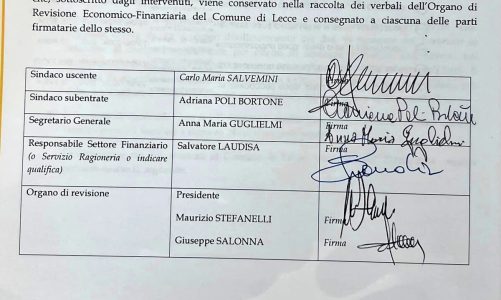 che, sottoscritto dagli intervenuti, viene conservato nella raccolta dei verbali dell'Organo di
Revisione Economico-Finanziaria del Comune di Lecce e consegnato a ciascuna delle parti
firmatarie dello stesso.
Sindaco uscente Carlo Maria SALVEMINI Firma
Sindaco subentrate Adriana POLI BORTONE Firma Adriana Poli Bortone
Segretario Generale Anna Maria GUGLIELMI Firma Anna Maria Guglielmi
Responsabile Settore Finanziario Salvatore LAUDISA Firma
(o Servizio Ragioneria o indicare
qualifica)
Organo di revisione Presidente
Maurizio STEFANELLI Firma
Giuseppe SALONNA Firma